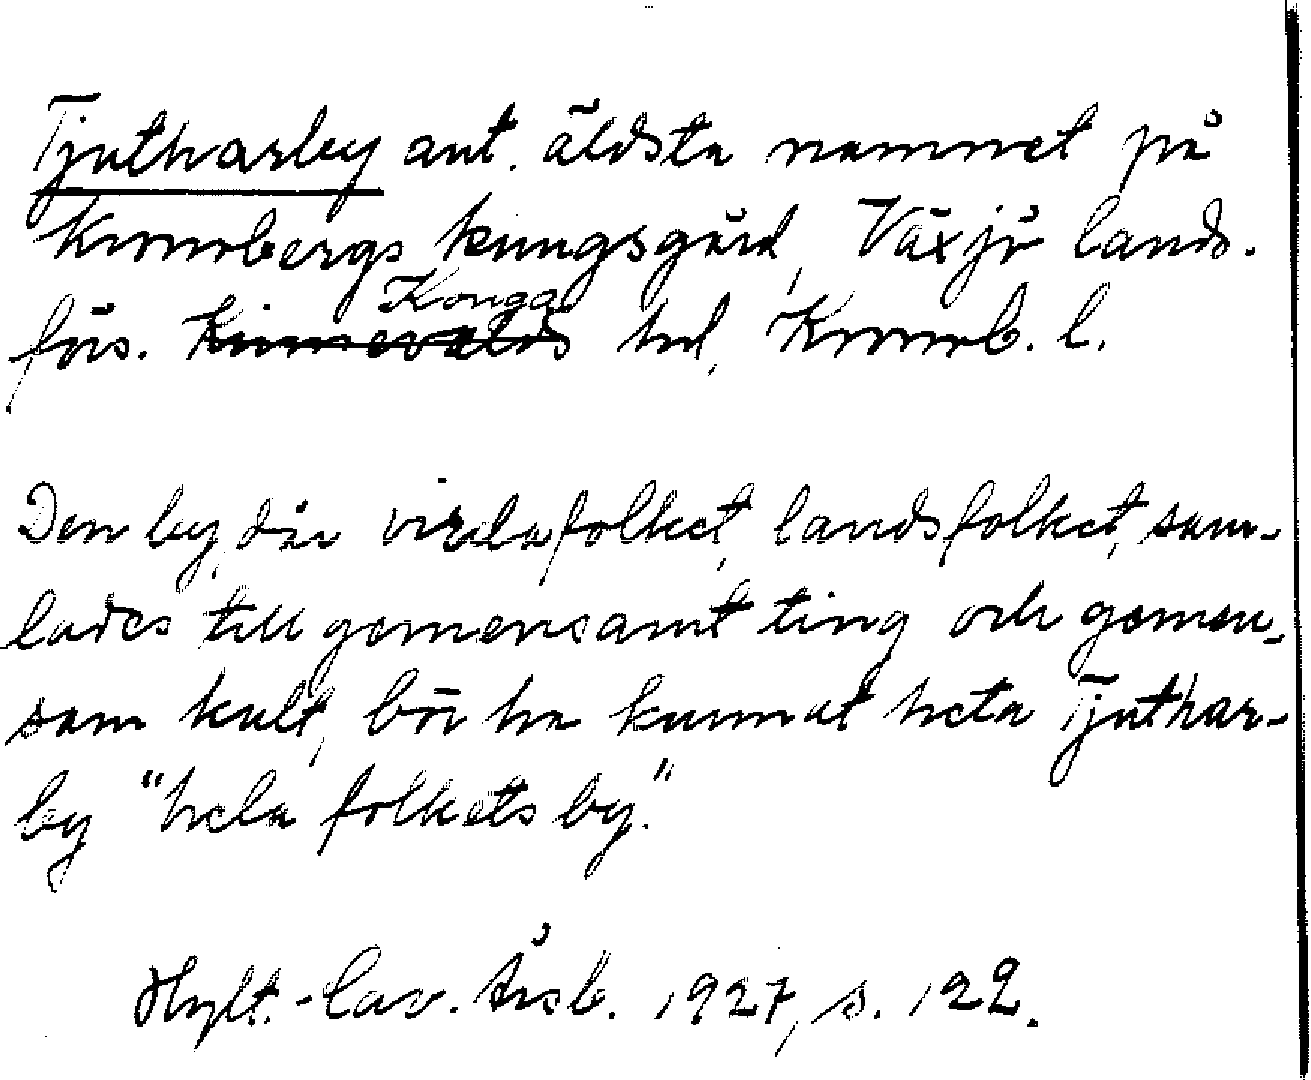 Tjutharby ant. äldsta namnet på
Kronobergs kungsgård, Växjö lands.
förs. Kinnevalds Konga hd, Kronob. l.
Den by, där virdafolket, landsfolket, sam-
lades till gemensamt ting och gemen-
sam kult, bör ha kunnat heta Tjuthar-
by "hela folkets by."
Hylt.-Cav. Årsb. 1927, s. 122.